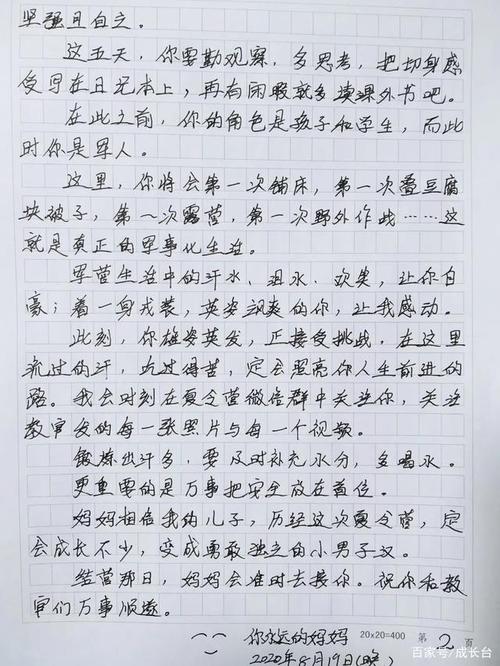 坚强且自立。
这五天，你要勤观察，多思考，把切身感
受写在日记本上，再有闲暇就多读课外书吧。
在此之前，你的角色是孩子和学生，而此
时你是军人。
这里，你将会第一次铺床，第一次叠豆腐
块被子，第一次露营，第一次野外作战……这
就是真正的军事化生活。
军营生活中的汗水、泪水、欢笑，让你自
豪；着一身戎装，英姿飒爽的你，让我感动。
此刻，你雄姿英发，正接受挑战，在这里
流过的汗，吃过得苦，定会照亮你人生前进的
路。我会时刻在夏令营微信群中关注你，关注
教官发的每一张照片与每一个视频。
锻炼出汗多，要及时补充水分，多喝水。
更重要的是万事把安全放在首位。
妈妈相信我的儿子，历经这次夏令营，定
会成长不少，变成勇敢独立的小男子汉。
结营那日，妈妈会准时去接你。祝你和教
官们万事顺遂。
你永远的妈妈
20×20=400 第 2 页
2020年8月19日(晚)
百家号/成长台